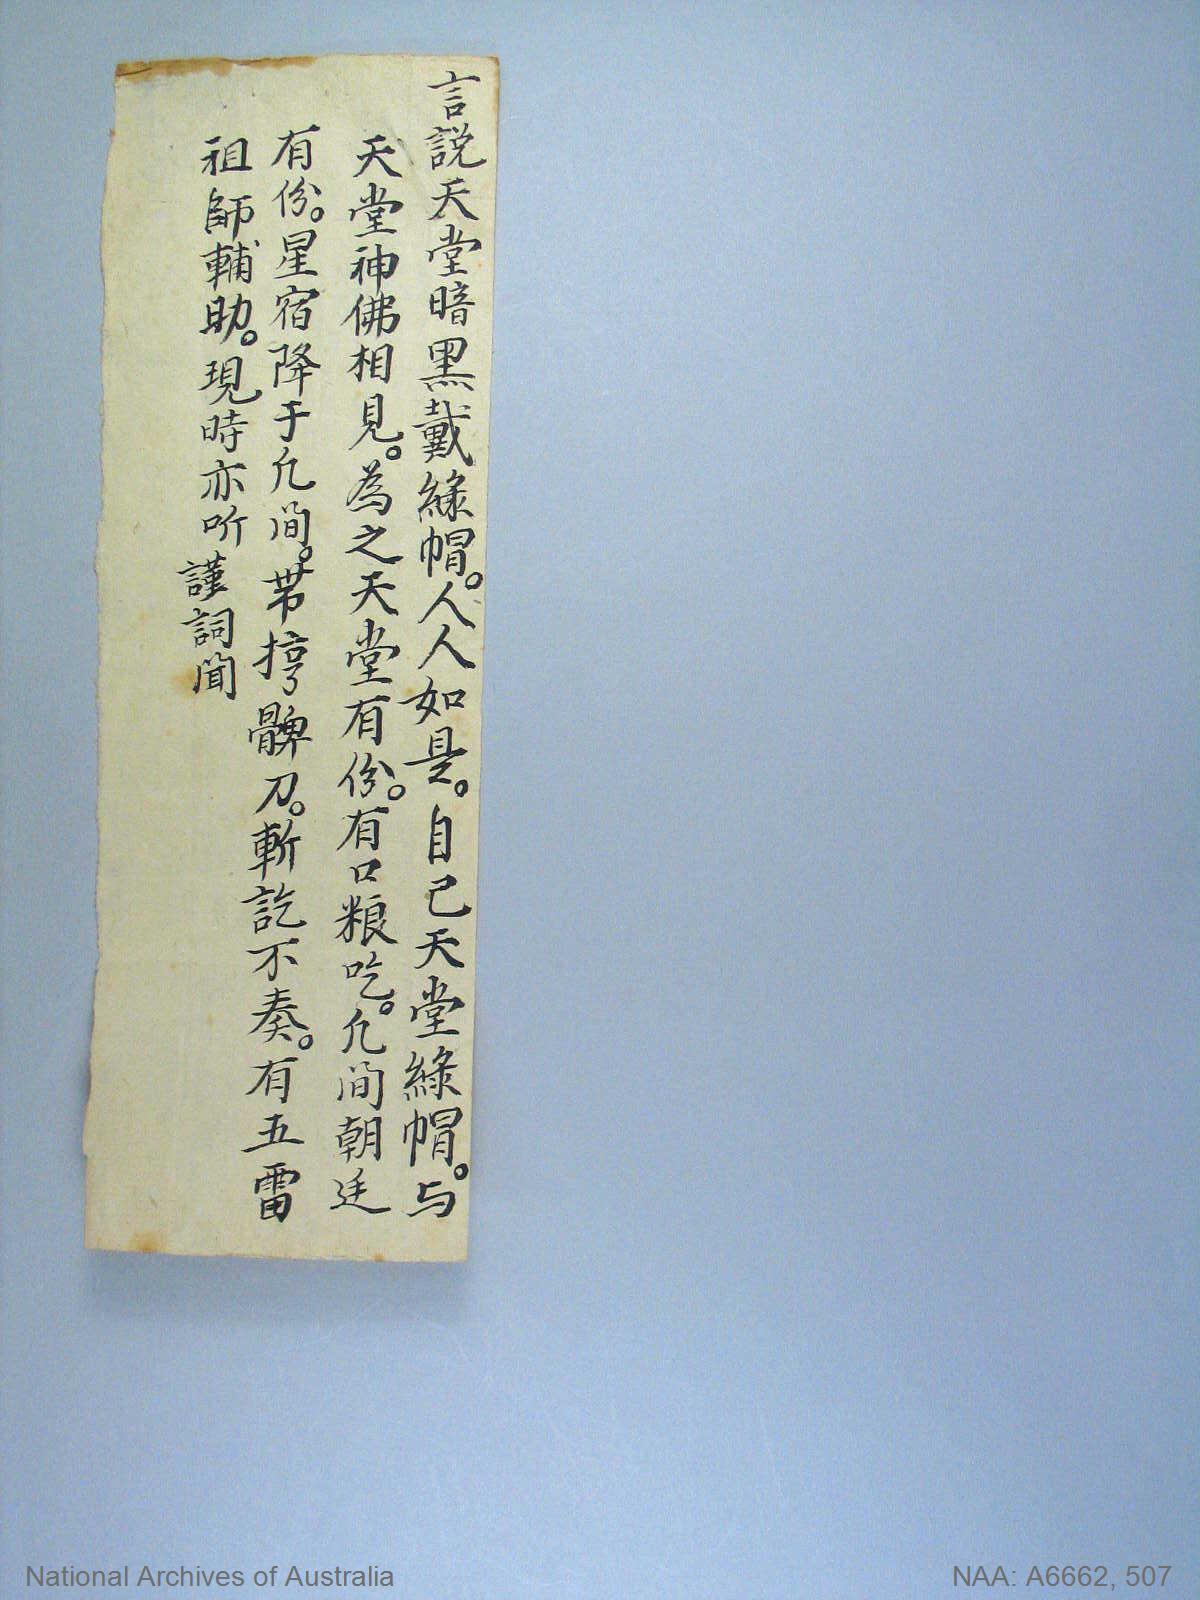 言説天堂暗黑戴綠帽。人人如是。自己天堂綠帽。与
天堂神佛相見。為之天堂有份。有口粮吃。凢間朝廷
有份。星宿降于凢間。帯揨髀刀。斬訖不奏。有五雷
祖師輔助。現時亦听
謹詞聞
National Archives of Australia
NAA: A6662, 507